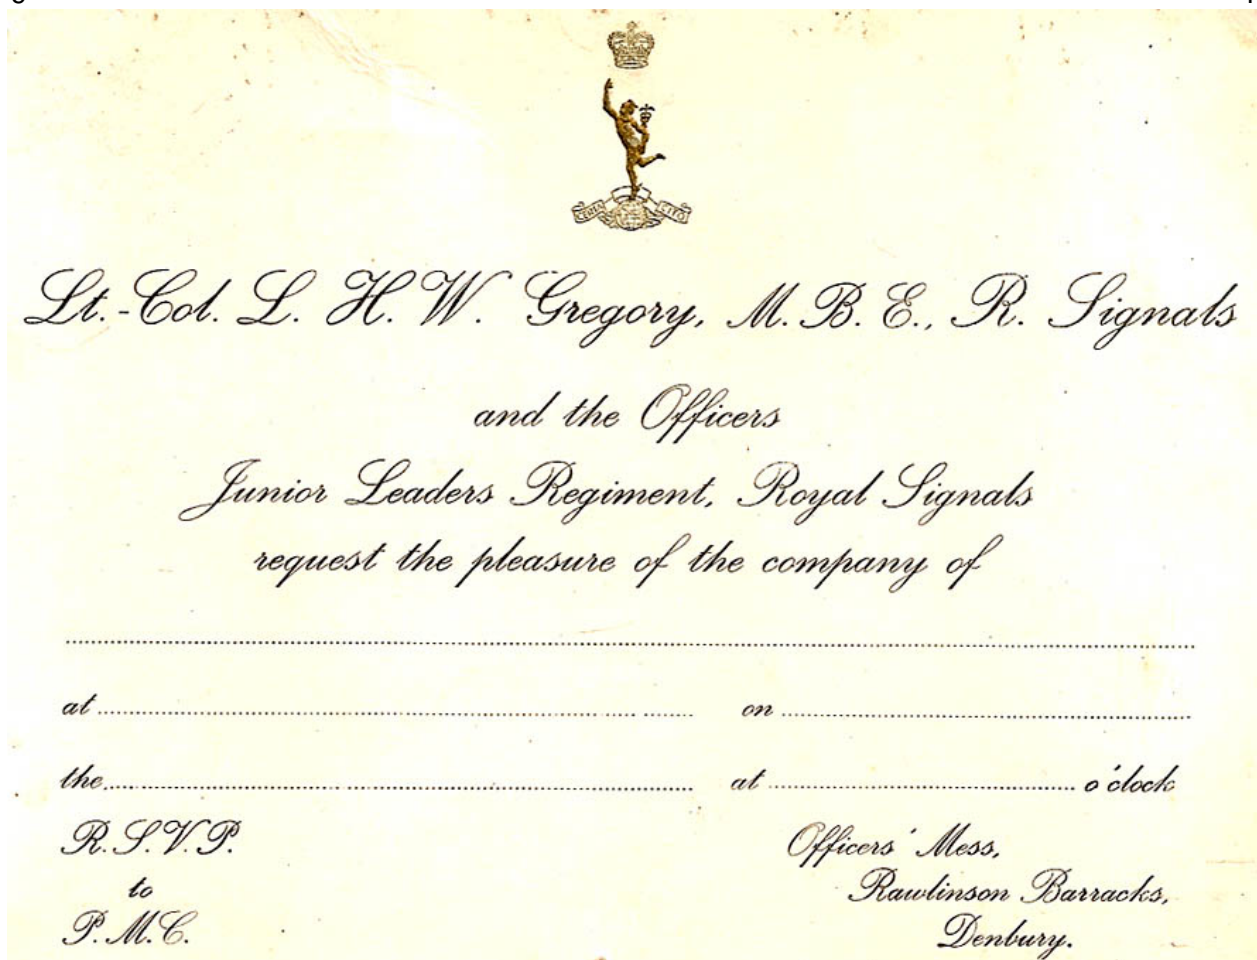 CERTA CITO
Lt.-Col. L. H. W. Gregory, M. B. E., R. Signals
and the Officers
Junior Leaders Regiment, Royal Signals
request the pleasure of the company of
at on
the at o'clock
R.S.V.P. Officers' Mess,
to Rawlinson Barracks,
P.M.C. Denbury.